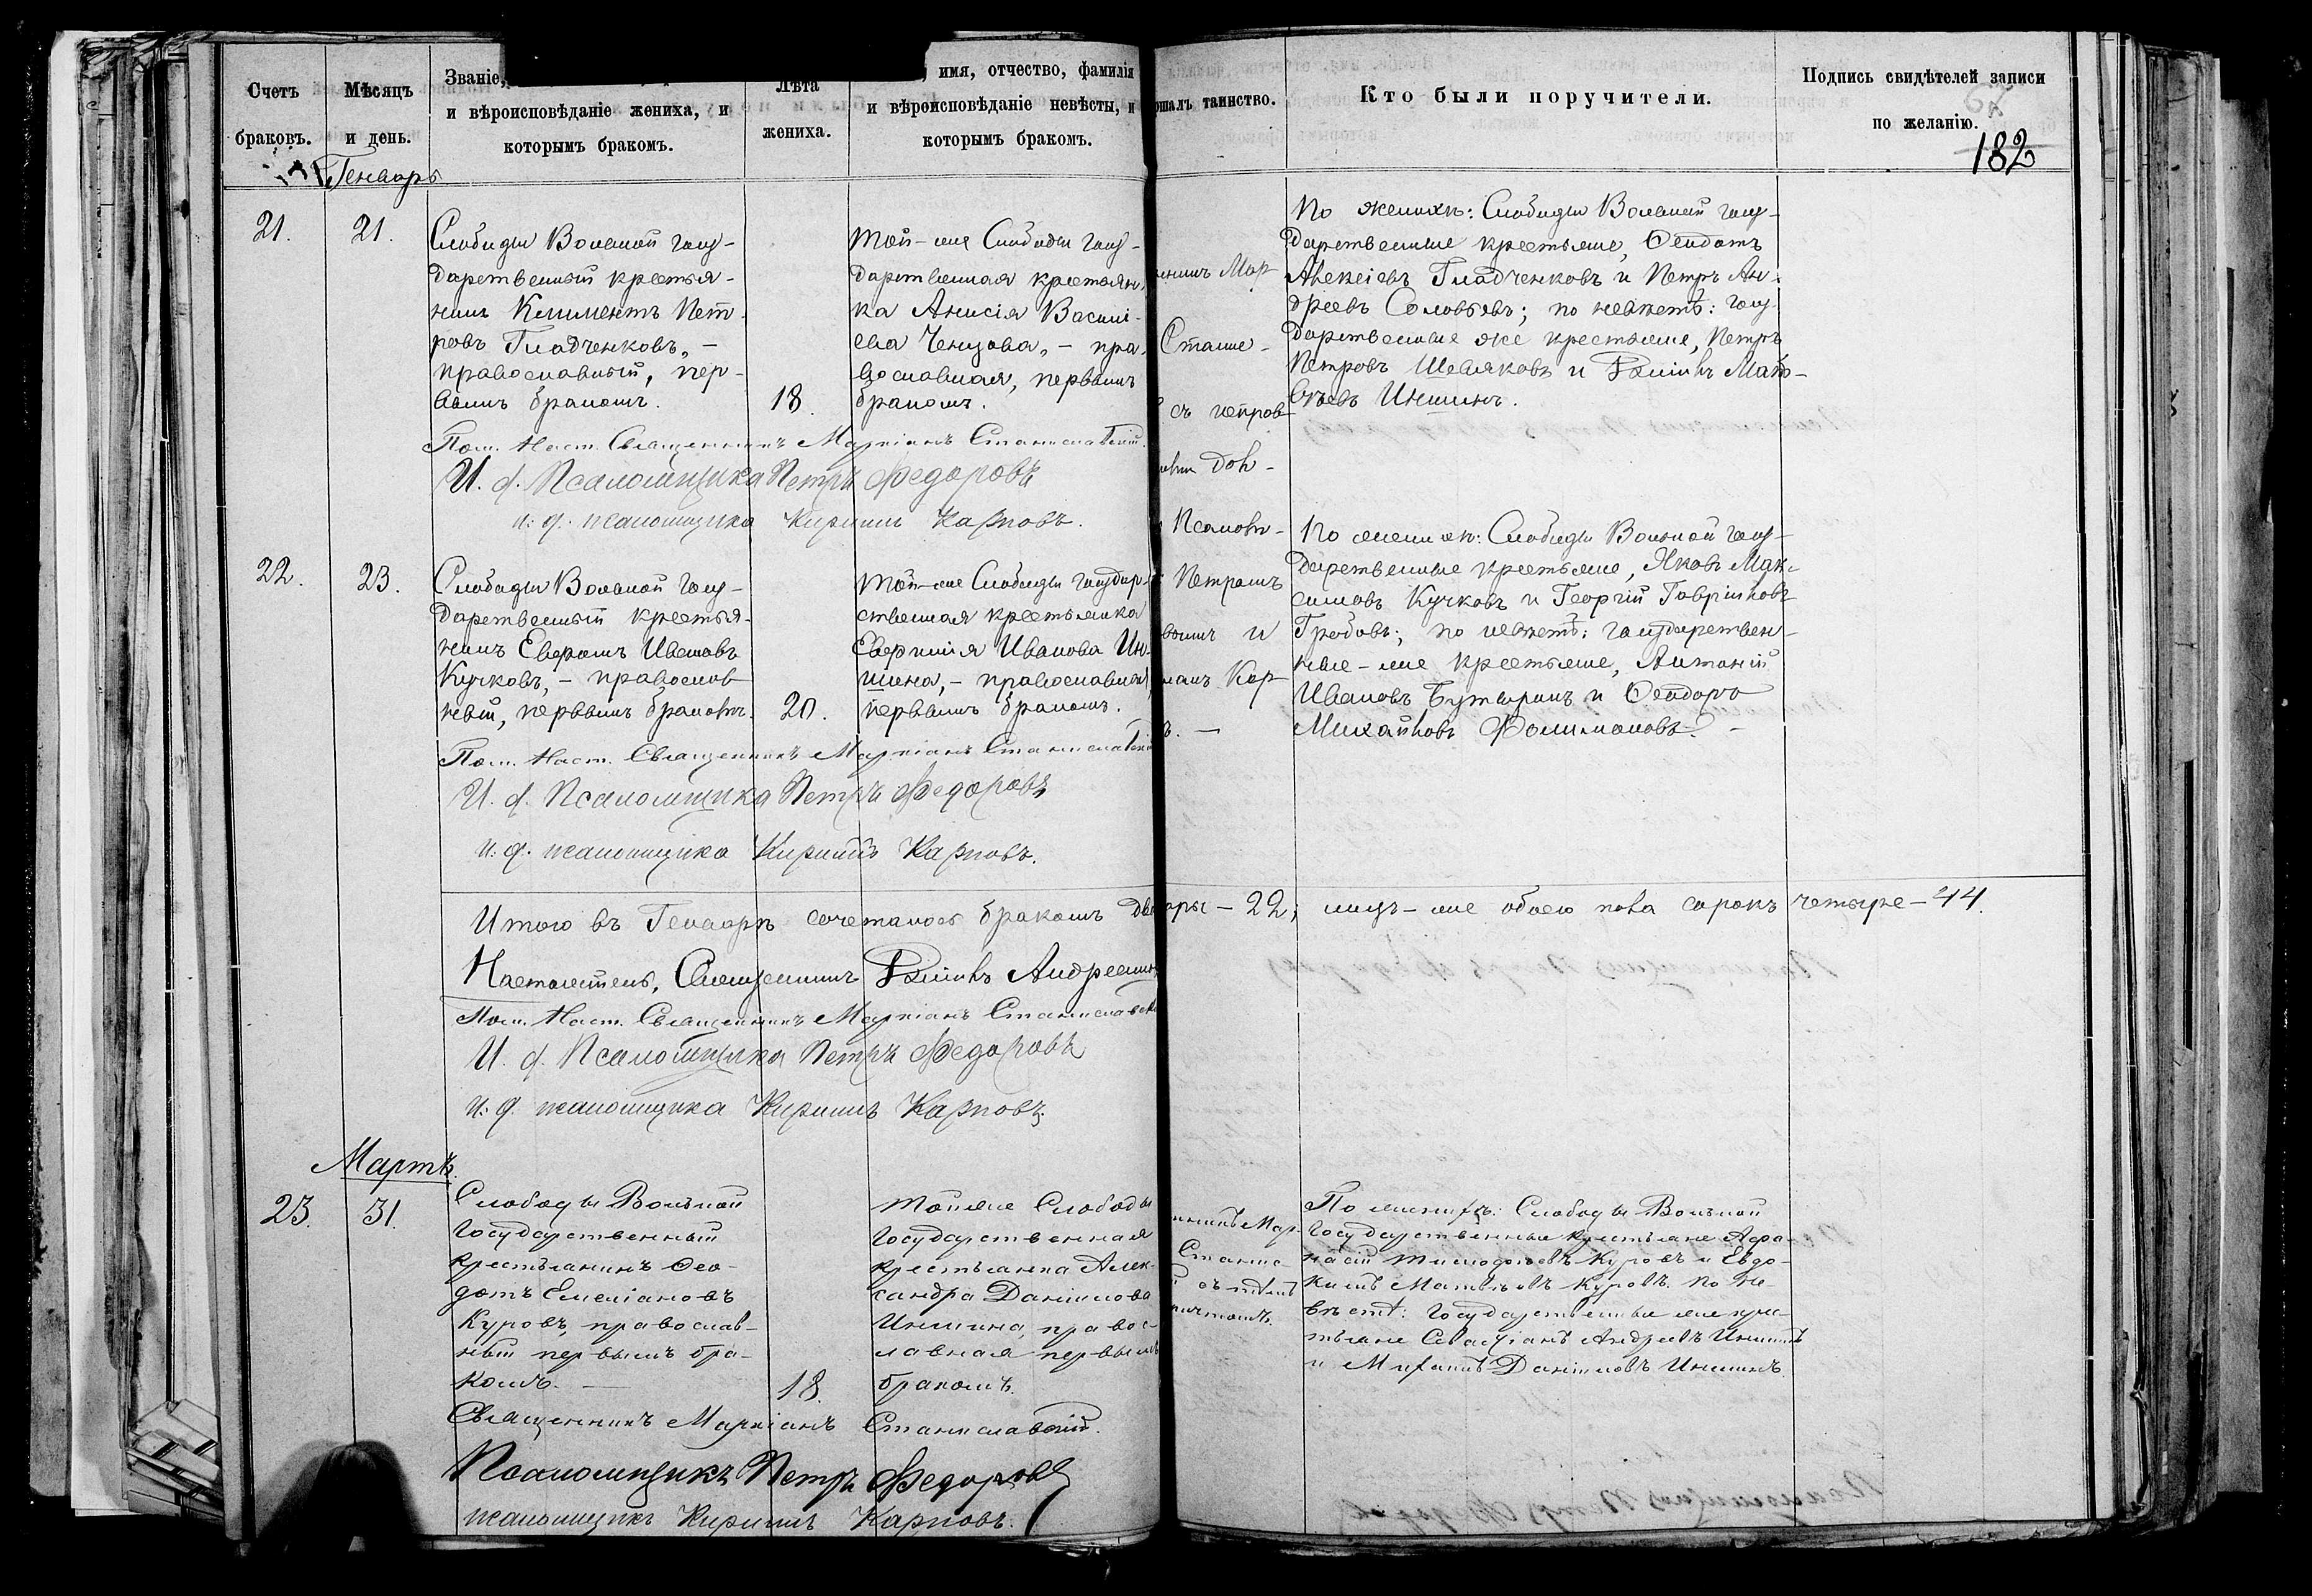 Счетъ браковъ.
Мѣсяцъ и день.
Званіе,
и вѣроисповѣданіе жениха, и
которымъ бракомъ.
Лѣта
жениха.
, имя, отчество, фамилія
и вѣроисповѣданіе невѣсты, и
которымъ бракомъ.
ршалъ таинство.
Кто были поручители.
Подпись свидѣтелей записи
по желанію.
182
Генварь
21.
21.
Слободы Вольной госу-
дарственный крестья-
нинъ Климентъ Пет-
ровъ Гладченковъ, –
православный, пер-
вымъ бракомъ.
18.
Той-же Слободы госу-
дарственная крестьян-
ка Анисія Василі-
ева Ченцова, – пра-
вославная, первымъ
бракомъ.
Мар
Стани-
съ
Псалом-
Петромъ
и
Кар
По женихѣ: Слободы Вольной госу-
дарственные крестьяне, Ѳеодотъ
Алексіевъ Гладченковъ и Петръ Ан-
дреевъ Соловьевъ; по невѣстѣ: госу-
дарственные же крестьяне, Петръ
Петровъ Шевляковъ и Филипъ Мат-
вѣевъ Иншинъ.
Пом. Наст. Священникъ Маркіанъ Станиславскій.
И. д. Псаломщика Петръ Федоровъ
и. д. псаломщика Кирилъ Карповъ.
22.
23.
Слободы Вольной госу-
дарственный крестья-
нинъ Евфромъ Ивановъ
Кучковъ, – православ
ный, первымъ бракомъ.
20.
Той-же Слободы государ-
ственная крестьянка
Евфимія Иванова Ин-
шина, – православная,
первымъ бракомъ.
По женихѣ: Слободы Вольной госу-
дарственные крестьяне, Яковъ Мак-
симовъ Кучковъ и Георгій Гавріиловъ
Гробовъ; по невѣстѣ: государствен-
ные-же крестьяне, Антоній
Ивановъ Бутыринъ и Ѳеодоръ
Михайловъ Филимоновъ. –
Пом. Наст. Священникъ Маркіанъ Станиславскій
И. д. Псаломщика Петръ Федоровъ
и. д. псаломщика Кирилъ Карповъ.
Итого въ Генварѣ сочеталось бракомъ два
ры – 22; лицъ-же обоего пола сорокъ четыре – 44.
Настоятель, Священникъ Филипъ Андреевъ
Пом. Наст. Священникъ Маркіанъ Станиславскій
И. д. Псаломщика Петръ Федоровъ
и. д. псаломщика Кирилъ Карповъ.
Мартъ.
23.
31.
Слободы Вольной
Государственный
крестьянинъ Ѳео-
дотъ Емеліановъ
Куровъ, православ-
ный первымъ бра-
комъ. –
18.
Тойже Слободы
Государственная
крестьянка Алек-
сандра Даніилова
Иншина, правос-
лавная первымъ
бракомъ.
Мар-
Стани
съ тѣмъ
причтомъ.
По женихѣ: Слободы Вольной
Государственные крестьяне Афа-
насій Тимофеевъ Куровъ и Евдо-
кимъ Матвѣевъ Куровъ. По не-
вѣстѣ: Государственные же крес-
тьяне Севастіанъ Андреевъ Иншинъ
и Михаилъ Даніиловъ Иншинъ.
Священникъ Маркіанъ Станиславскій.
Псаломщикъ Петръ Федоровъ
псаломщикъ Кирилъ Карповъ.